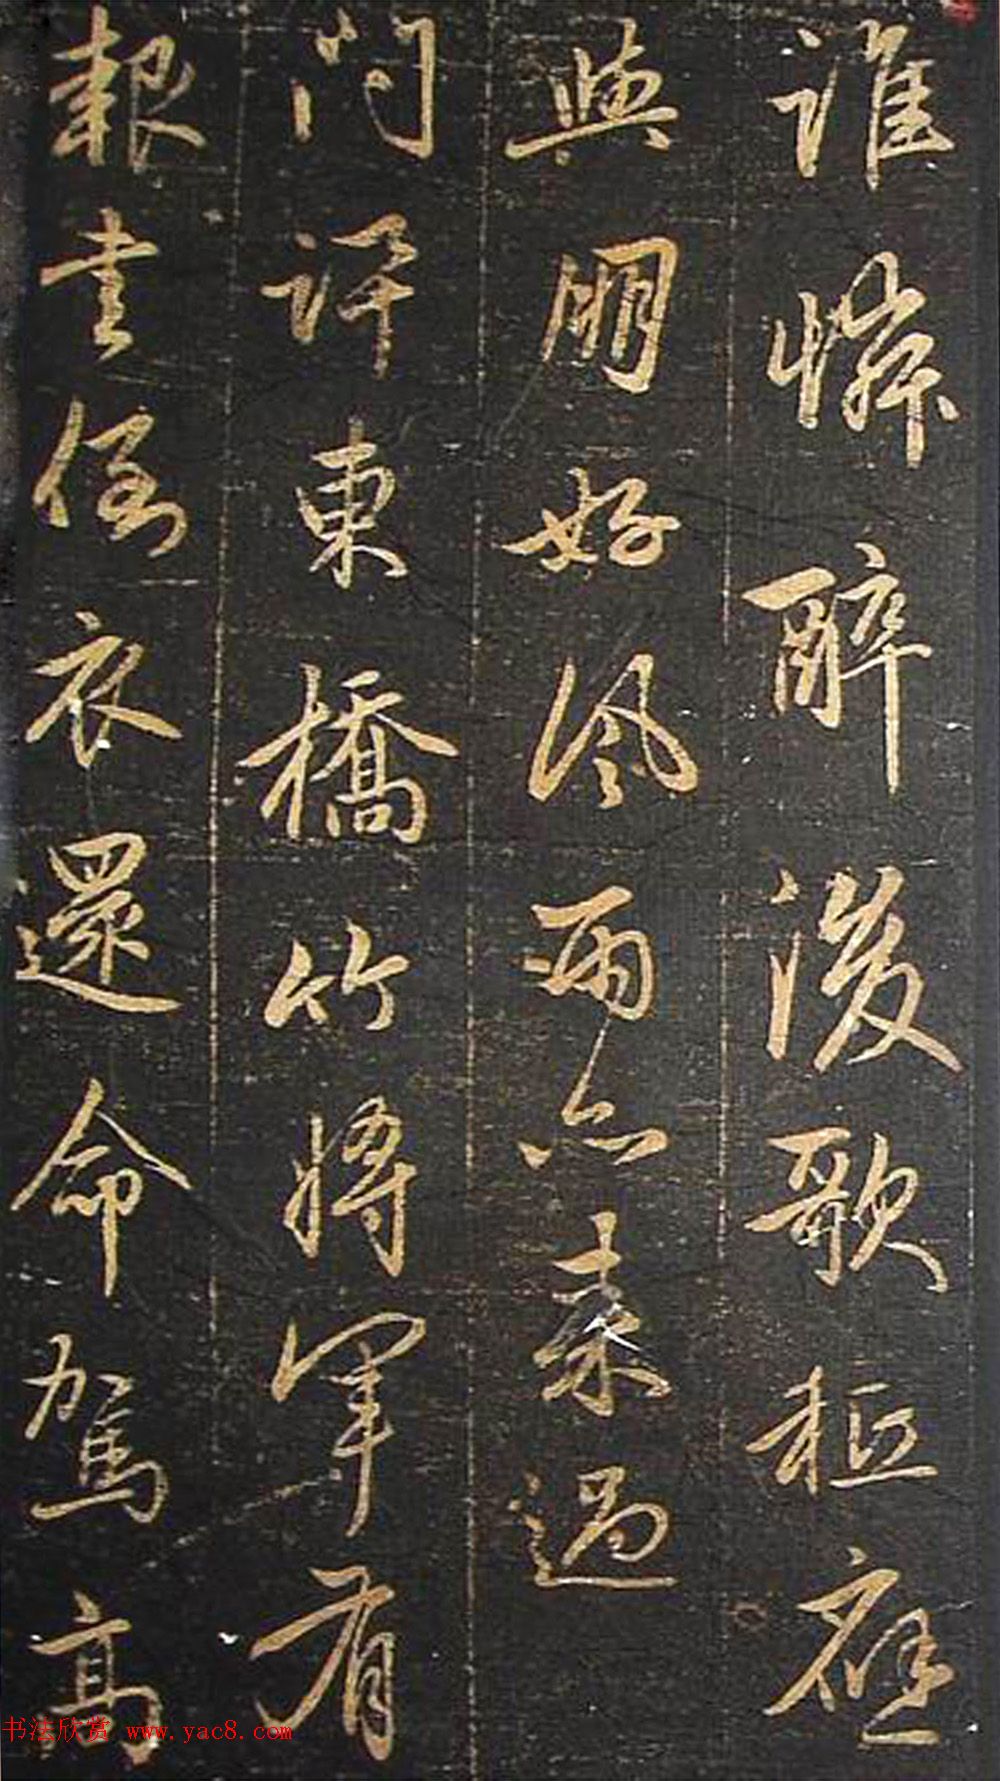 誰憐醉後歌秪應
與朋好風雨亦來過
問訊東橋竹將軍有
報書倒衣還命駕高
书法欣赏 www.yac8.com